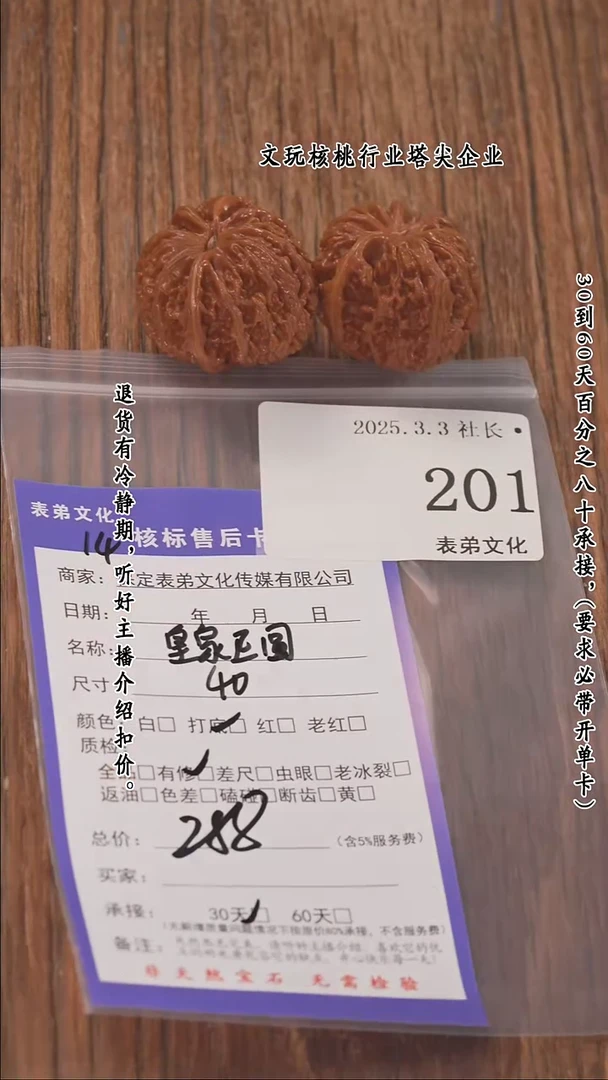 文玩核桃行业塔尖企业
30到60天百分之八十承接,(要求必带开单卡)
退货有冷静期,听好主播介绍扣价。
2025.3.3 社长
201
表弟文化
表弟文化
14
核标售后卡
商家: 定表弟文化传媒有限公司
日期: 年 月 日
名称: 皇家正圆
尺寸 40
颜色 白□ 打底□ 红□ 老红□
质检
全品□有修□差尺□虫眼□老冰裂□
返油□色差□磕碰□断齿□黄□
总价: 288 (含5%服务费)
买家:
承接: 30天□ 60天□
备注:
非天然宝石 无需检验